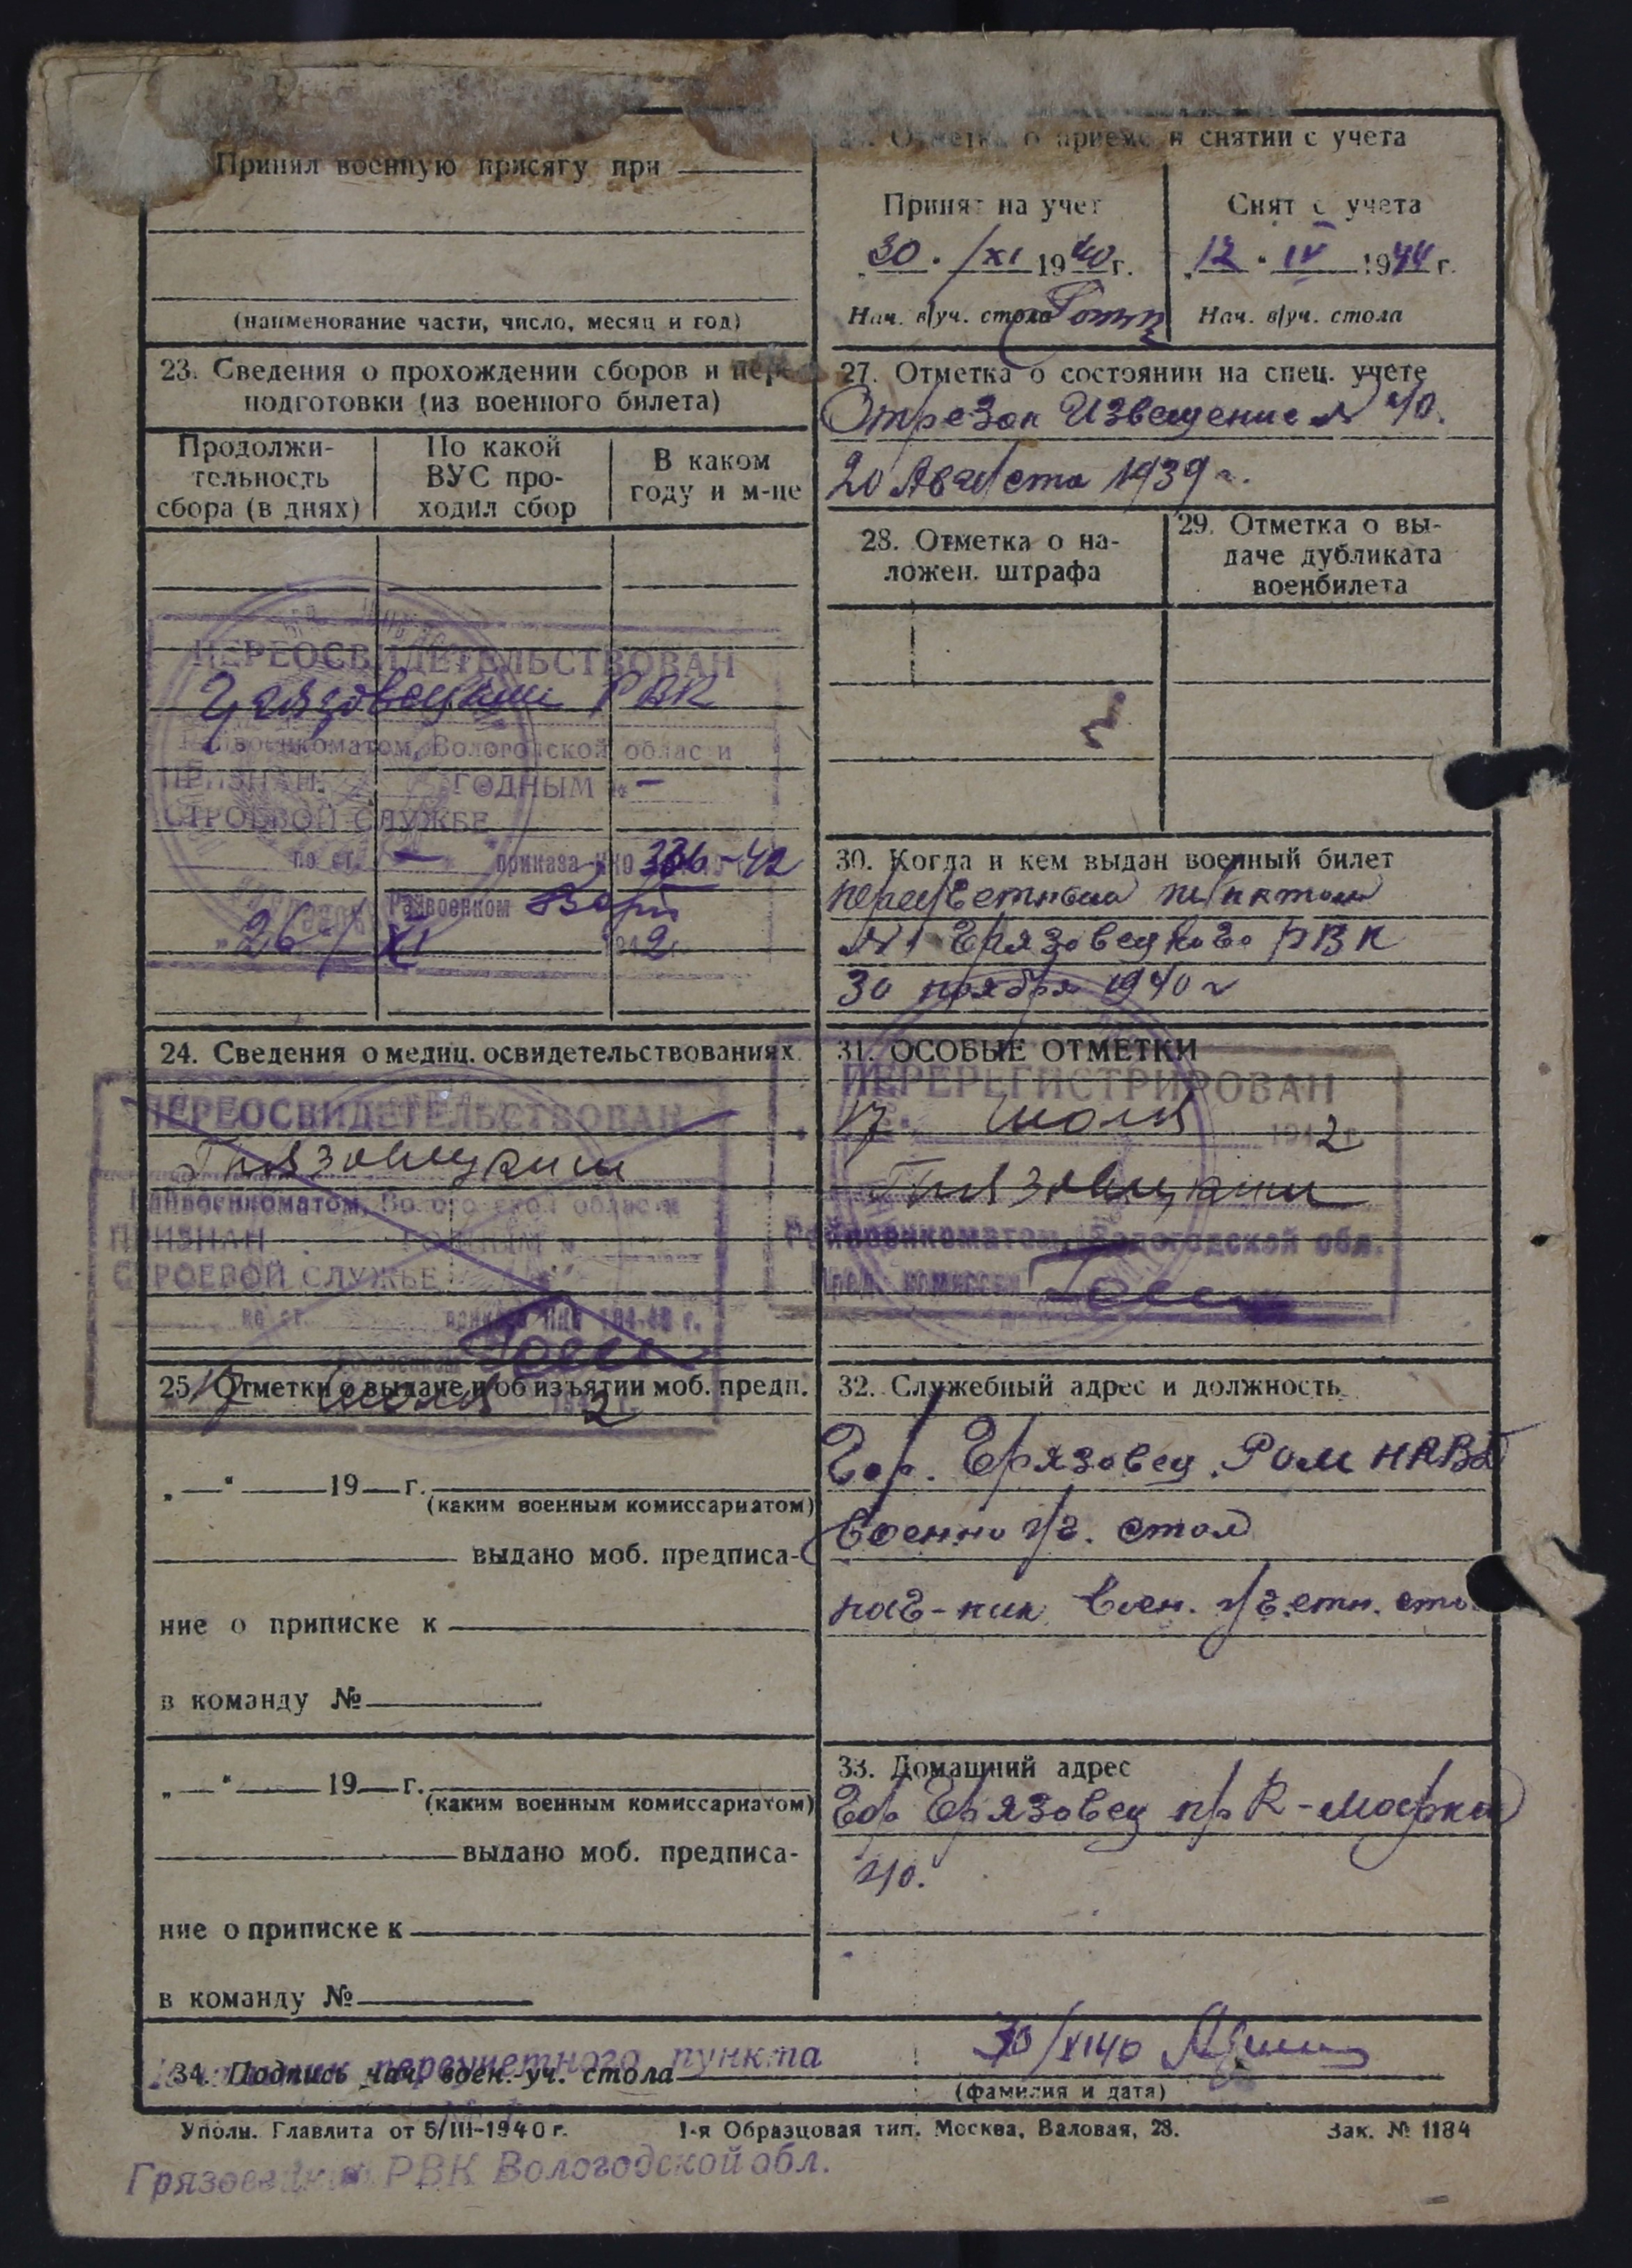 Принял военную присягу при
(наименование части, число, месяц и год)
23. Сведения о прохождении сборов и пере-
подготовки (из военного билета)
Продолжи-
тельность
сбора (в днях)
По какой
ВУС про-
ходил сбор
В каком
году и м-це
ПЕРЕОСВИДЕТЕЛЬСТВОВАН
Грязовецким РВК
Райвоенкоматом, Вологодской области
ПРИЗНАН ГОДНЫМ к —
СТРОЕВОЙ СЛУЖБЕ
по ст. — приказа НКО 336-42
Райвоенком
"26" XI 1942 г.
24. Сведения о медиц. освидетельствованиях.
ПЕРЕОСВИДЕТЕЛЬСТВОВАН
Грязовецким
Райвоенкоматом, Вологодской области
ПРИЗНАН ГОДНЫМ к
СТРОЕВОЙ СЛУЖБЕ
по ст. приказа НКО 184-40 г.
Райвоенком
25. Отметки о выдаче и об изъятии моб. предп.
17 июля 1942 г.
„ — " 19 — г.
(каким военным комиссариатом)
выдано моб. предписа-
ние о приписке к
в команду №
„ — " 19 — г.
(каким военным комиссариатом)
выдано моб. предписа-
ние о приписке к
в команду №
Отметка о приеме и снятии с учета
Принят на учет
„30. /XI 1940 г.
Нач. в/уч. стола
Снят с учета
„12 " IV 1944 г.
Нач. в/уч. стола
27. Отметка о состоянии на спец. учете
Отрезок Извещение № 40.
20 Августа 1939 г.
28. Отметка о на-
ложен. штрафа
29. Отметка о вы-
даче дубликата
военбилета
30. Когда и кем выдан военный билет
переучетным пунктом
№1 Грязовецкого РВК
30 ноября 1940 г
31. ОСОБЫЕ ОТМЕТКИ
ПЕРЕРЕГИСТРИРОВАН
17 июля 1942 г.
Грязовецким
Райвоенкоматом, Вологодской обл.
Пред. комиссии
32. Служебный адрес и должность
Гор. Грязовец. РОМ НКВД
Военно уч. стол
нач-ник воен. учетн. сто
33. Домашний адрес
Гор Грязовец пр К-Маркса
40.
Начальник переучетного пункта
34. Подпись нач. воен.-уч. стола
30/XI 40
(фамилия и дата)
Уполн. Главлита от 5/III-1940 г.
1-я Образцовая тип. Москва, Валовая, 28.
Зак. № 1184
Грязовецкий РВК Вологодской обл.